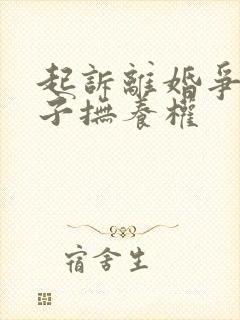 起訴離婚爭
子撫養權
宿舍生